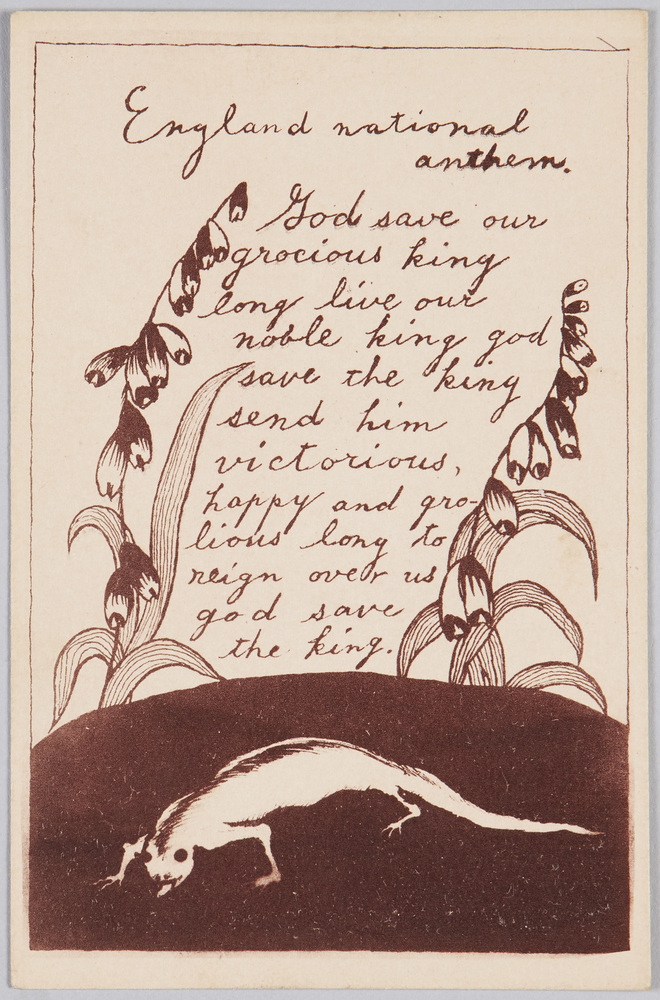 England national
anthem.
God save our
grocious king
long live our
noble king god
save the king
send him
victorious,
happy and gro-
lious long to
reign over us
god save
the king.